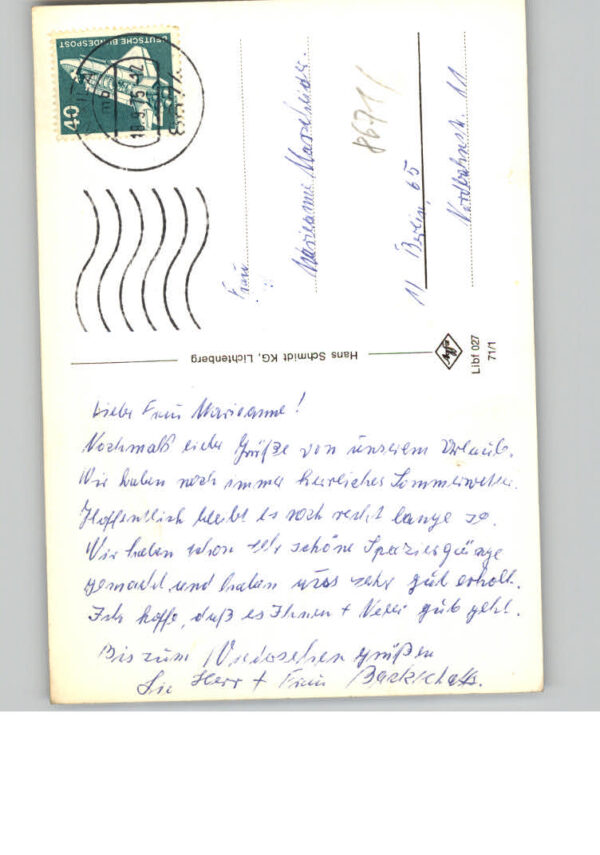 DEUTSCHE BUNDESPOST
40
18.9.75
8671/
Frau
Marieanne
1/ Berlin 65
Nordbahnstr. 11
Hans Schmidt KG, Lichtenberg
Libf 027
71/1
Liebe Frau Marieanne!
Nochmals liebe Grüße von unserem Urlaub.
Wir haben noch immer herrliches Sommerwetter.
Hoffentlich bleibt es noch recht lange so.
Wir haben schon sehr schöne Spaziergänge
gemacht und haben uns sehr gut erholt.
Ich hoffe, daß es Ihnen + gut geht.
Bis zum Wiedersehen grüßen
Sie Herr + Frau